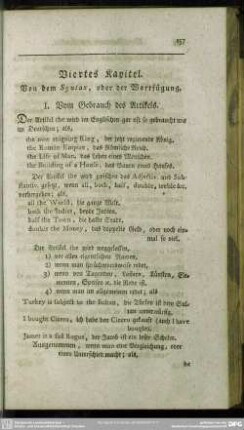 157
Viertes Kapitel.
Von dem Syntax, oder der Wortfügung.
1. Vom Gebrauch des Artikels.
Der Artikel the wird im Englischen gar oft so gebraucht wie
im Deutschen; als,
the now reigning King, der jetzt regierende König,
the Roman Empire, das Römische Reich.
the Life of Man, das Leben eines Menschen.
the Building of a House, das Bauen eines Hauses.
Der Artikel the wird zwischen das Adjectiv und Sub-
stantiv gesetzt, wenn all, both, half, double, treble &c.
vorhergehen; als:
all the World, die ganze Welt.
both the Indies, beyde Indien.
half the Town, die halbe Stadt.
double the Money, das doppelte Geld, oder noch ein-
mal so viel.
Der Artikel the wird weggelassen,
1) vor allen eigentlichen Namen,
2) wenn man sprüchwortsweise redet,
3) wenn von Tugenden, Lastern, Künsten,
Spielen die Rede ist.
4) wenn man im allgemeinen redet; als
Turkey is subject to the Sultan, die Türkey ist dem Sul-
tan unterthänig.
I bought Cicero, ich habe den Cicero gekauft (auch I have
bought).
James is a sad Rogue, der Jacob ist ein
Ausgenommen, wenn man eine Vergleichung, oder
einen Unterschied macht; als,